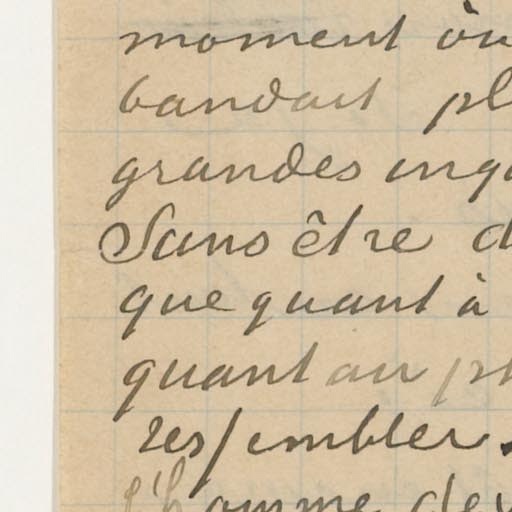 moment où
bandait pl
grandes inqu
Sans être d
que quant à
quant au ph
ressembler.
l'homme dev